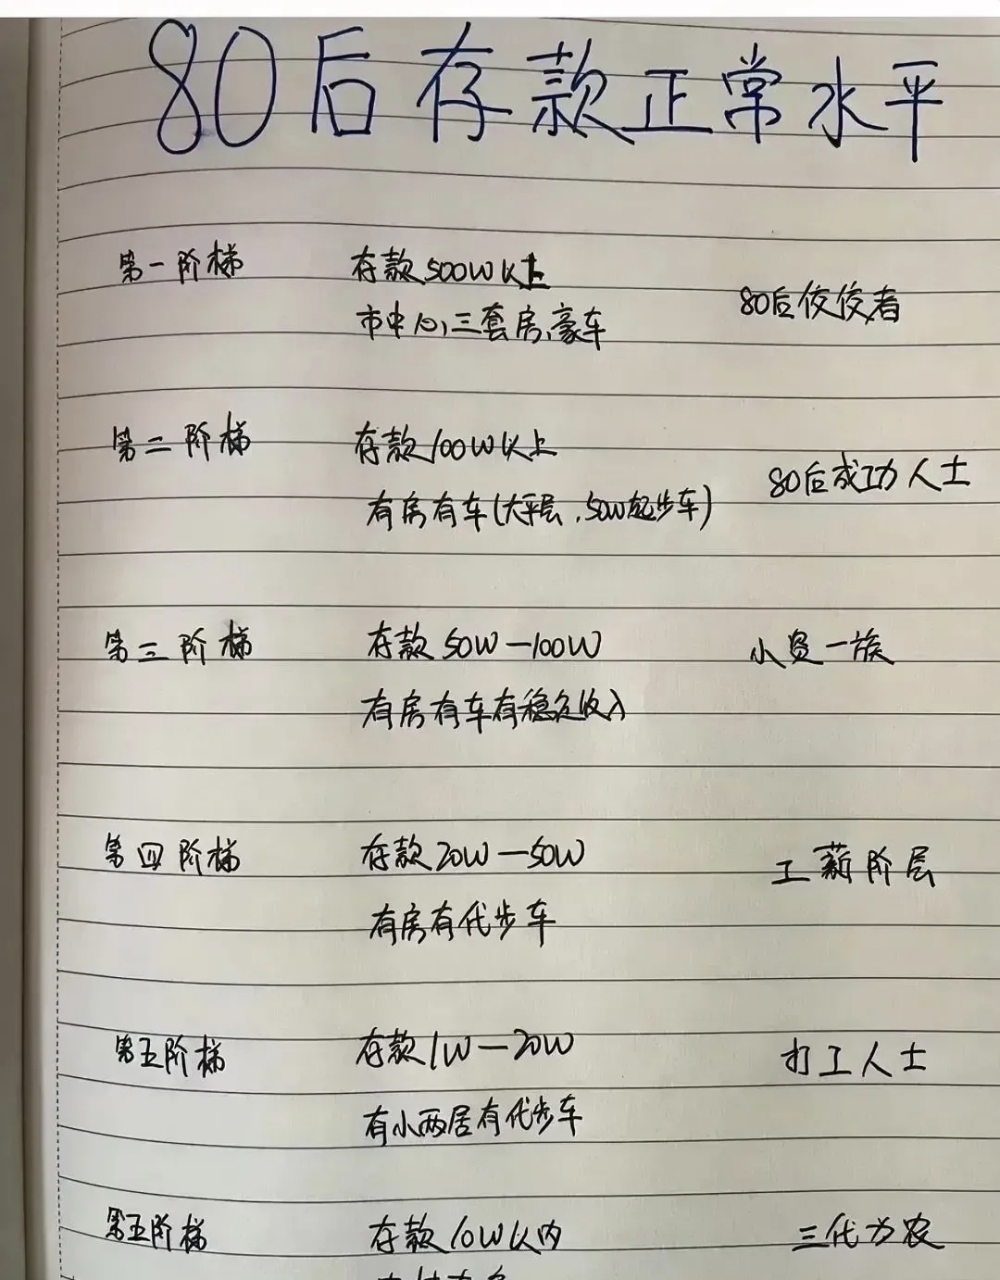 80后存款正常水平
第一阶梯 存款500W以上
市中心,三套房,豪车 80后佼佼者
第二阶梯 存款100W以上
有房有车(大平层,50W起步车) 80后成功人士
第三阶梯 存款50W—100W 小资一族
有房有车有稳定收入
第四阶梯 存款20W—50W 工薪阶层
有房有代步车
第五阶梯 存款1W—20W 打工人士
有小两居有代步车
第五阶梯 存款10W以内 三代为农